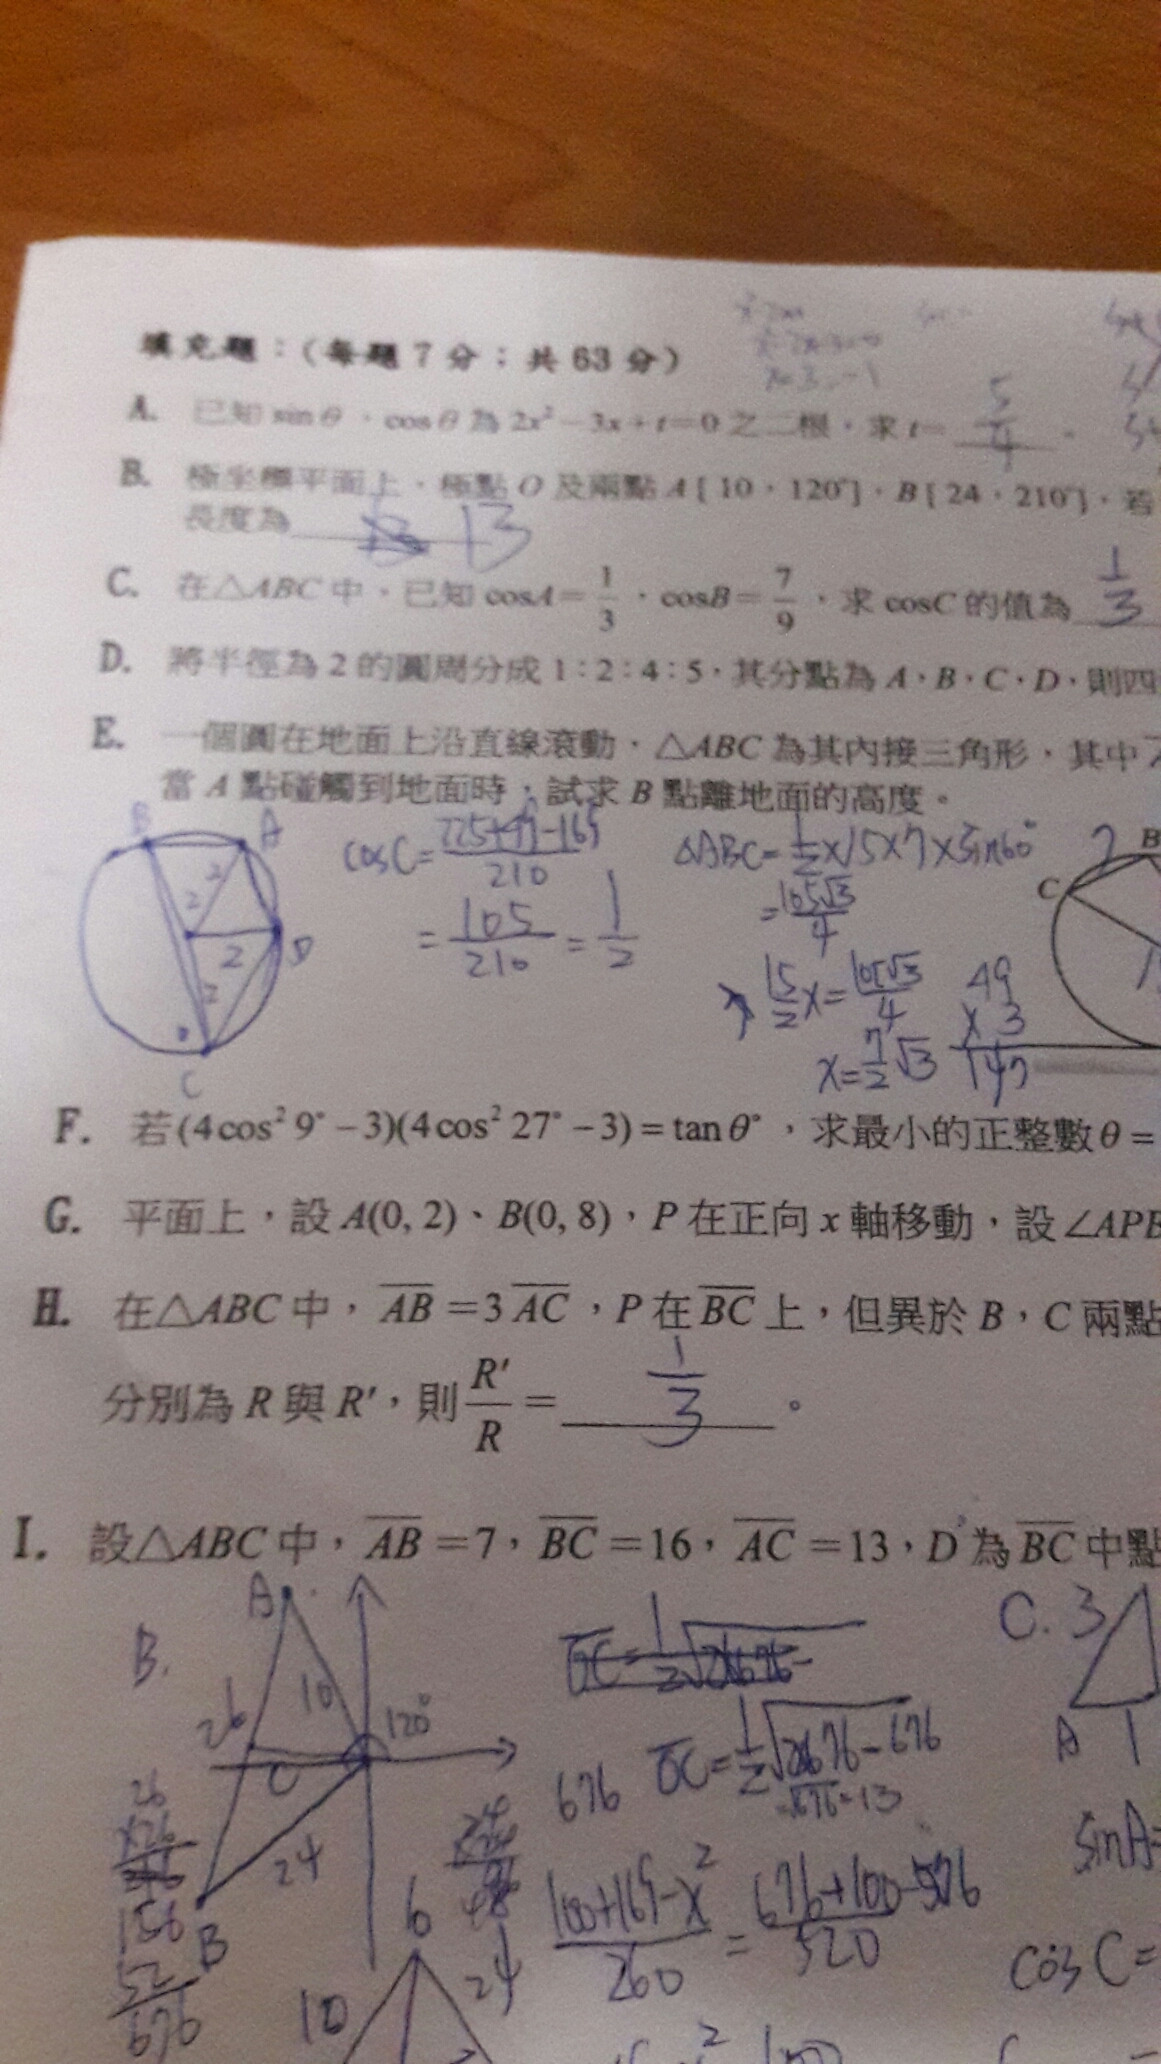 填充題：(每題 7 分；共 63 分)
A. 已知 sinθ、cosθ 為 2x²－3x＋t＝0 之二根，求 t＝ 5/4 。
B. 極坐標平面上，極點 O 及兩點 A [ 10，120°]，B [ 24，210°]，若
長度為 13
C. 在△ABC 中，已知 cosA＝1/3，cosB＝7/9，求 cosC 的值為 1/3
D. 將半徑為 2 的圓周分成 1：2：4：5，其分點為 A，B，C，D，則四
E. 一個圓在地面上沿直線滾動，△ABC 為其內接三角形，其中
當 A 點碰觸到地面時，試求 B 點離地面的高度。
B A
2 2 2 2 D
C
cosC = (225+49-169)/210
= 105/210 = 1/2
△ABC = 1/2 x15x7xsin60°
= 105√3/4
15/2 x = 105√3/4
x = 7/2 √3
49
x 3
147
7 B
C
F. 若 (4cos² 9° − 3)(4cos² 27° − 3) = tan θ°，求最小的正整數 θ =
G. 平面上，設 A(0, 2)、B(0, 8)，P 在正向 x 軸移動，設 ∠APB
H. 在△ABC 中，AB = 3 AC，P 在 BC 上，但異於 B，C 兩點
分別為 R 與 R′，則 R′/R = 1/3 。
I. 設△ABC 中，AB = 7，BC = 16，AC = 13，D 為 BC 中點
B.
A
26 10 120°
C
24
B
26
x26
156
52
676
676
OC = 1/2 √2x676-676
(100+169-x²)/260 = (676+100-576)/520
C. 3
A 1
sinA=
cosC=
6
10 24